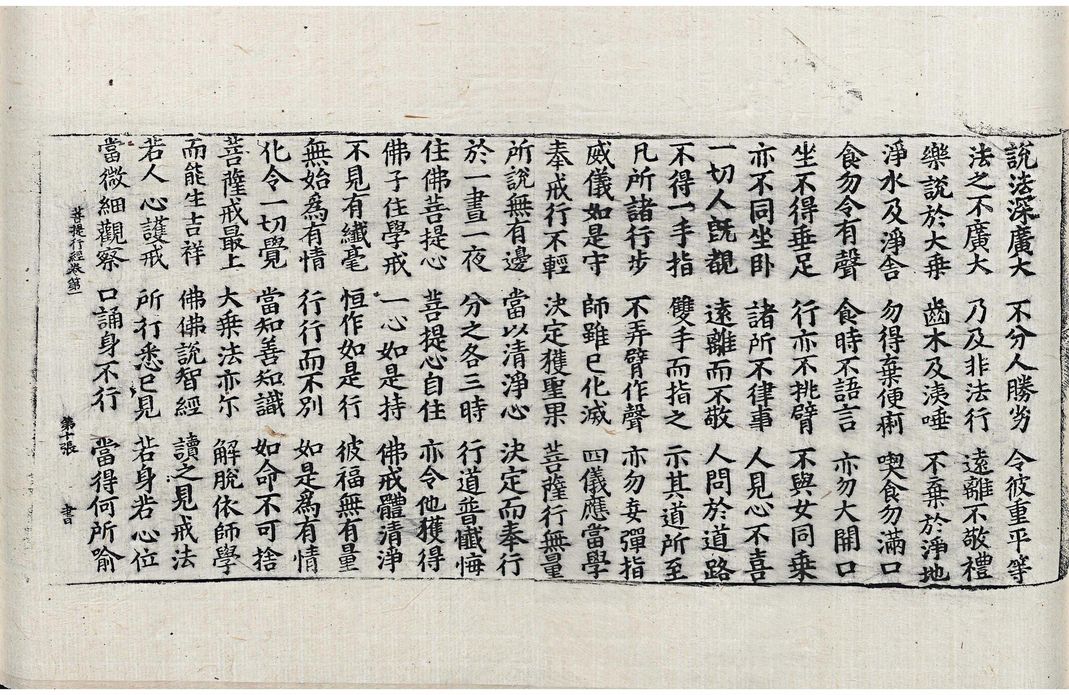 說法深廣大　不分人勝劣　令彼重平等
法之不廣大　乃及非法行　遠離不敬禮
樂說於大乗　齒木及洟唾　不棄於淨地
淨水及淨舍　勿得棄便痢　喫食勿滿口
食勿令有聲　食時不語言　亦勿大開口
坐不得垂足　行亦不挑臂　不與女同乗
亦不同坐卧　諸所不律事　人見心不喜
一切人旣覩　遠離而不敬　人問於道路
不得一手指　雙手而指之　示其道所至
凡所諸行步　不弄臂作聲　亦勿妄彈指
威儀如是守　師雖已化滅　四儀應當學
奉戒行不輕　決定獲聖果　菩薩行無量
所說無有邊　當以清淨心　決定而奉行
於一晝一夜　分之各三時　行道普懺悔
住佛菩提心　菩提心自住　亦令他獲得
佛子住學戒　一心如是持　佛戒體清淨
不見有纖毫　恒作如是行　彼福無有量
無始爲有情　行行而不別　如是爲有情
化令一切覺　當知善知識　如命不可捨
菩薩戒最上　大乗法亦尓　解脫依師學
而能生吉祥　佛佛說智經　讀之見戒法
若人心護戒　所行悉已見　若身若心位
菩提行經卷第一　第十張　書
當微細觀察　口誦身不行　當得何所喻